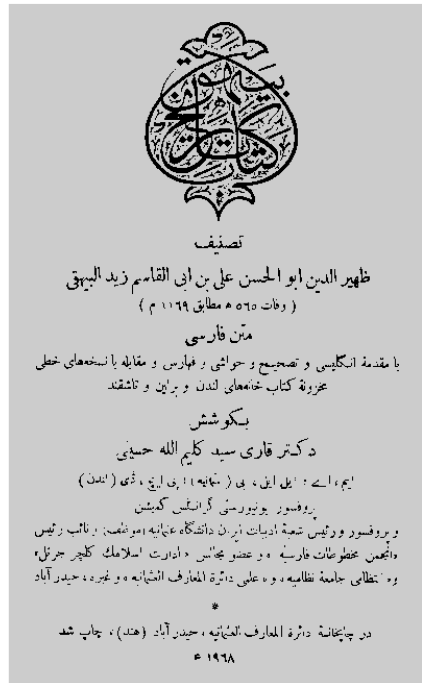 کتاب تاریخ بیهق
تصنیف
ظهیر الدین ابو الحسن علی بن ابی القاسم زید البیهقی
( وفات ٥٦٥ ھ مطابق ١١٦٩ م )
متن فارسی
با مقدمهٔ انگلیسی و تصحیح و حواشی و فهارس و مقابله با نسخه‌های خطی
مخزونهٔ کتاب خانه‌های لندن و برلین و تاشقند
بکوشش
دکتر قاری سید کلیم الله حسینی
ایم، اے؛ ایل ایل، بی (عثمانیه)؛ پی ایچ، ڈی (لندن)
پروفسور یونیورسٹی گرانٹس کمیشن
و پروفسور و رئیس شعبهٔ ادبیات ایران دانشگاه عثمانیه (موظف) و نائب رئیس
«انجمن مخطوطات فارسیه» و عضو مجالس «ادارت اسلامك کلچر جرنل»
و «انتظامی جامعهٔ نظامیه» و «علمی دائرة المعارف العثمانیه» وغیره، حیدر آباد
*
در چاپخانهٔ دائرة المعارف العثمانیه، حیدر آباد (هند)، چاپ شد
١٩٦٨ ع